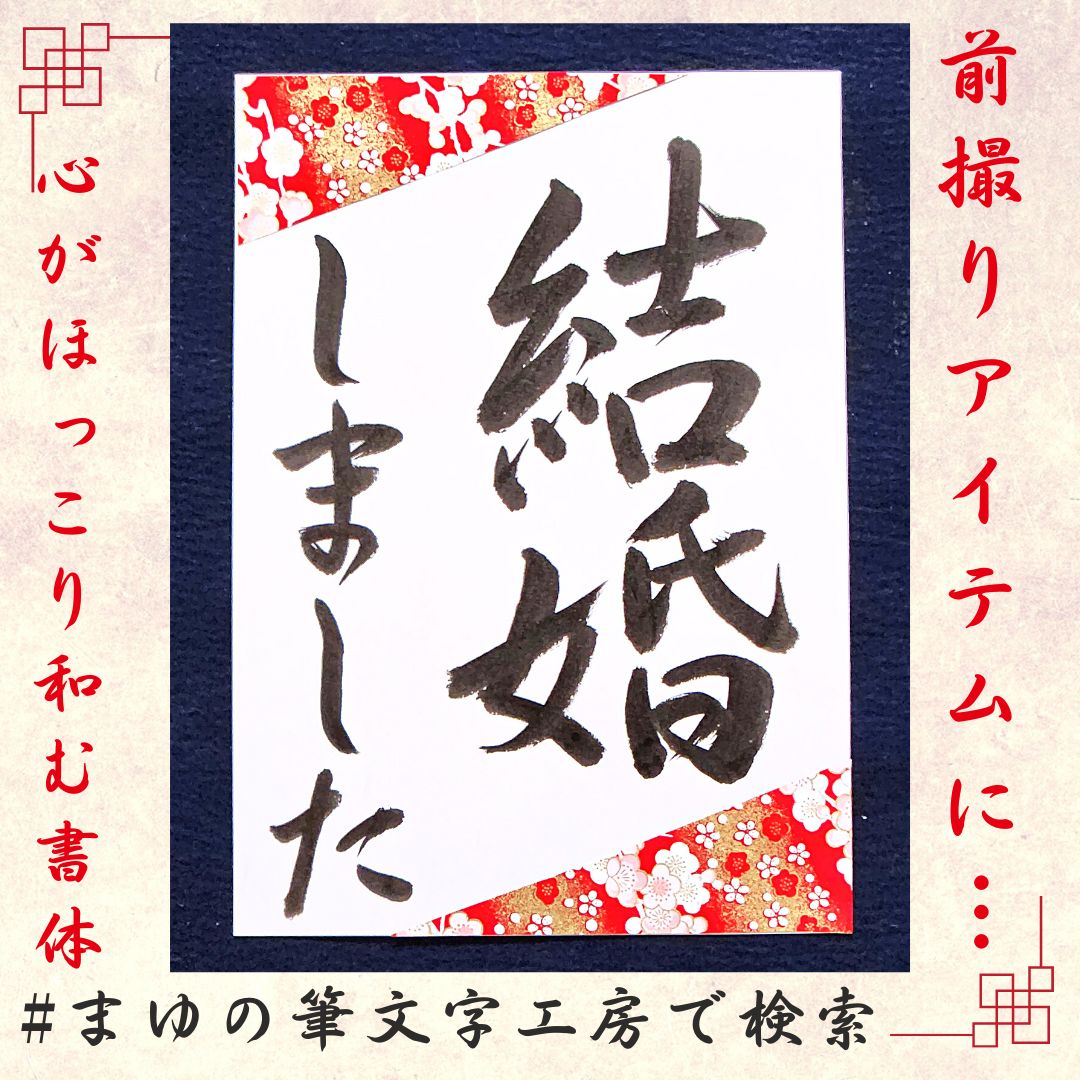 前撮りアイテムに…
結婚
しました
心がほっこり和む書体
#まゆの筆文字工房で検索